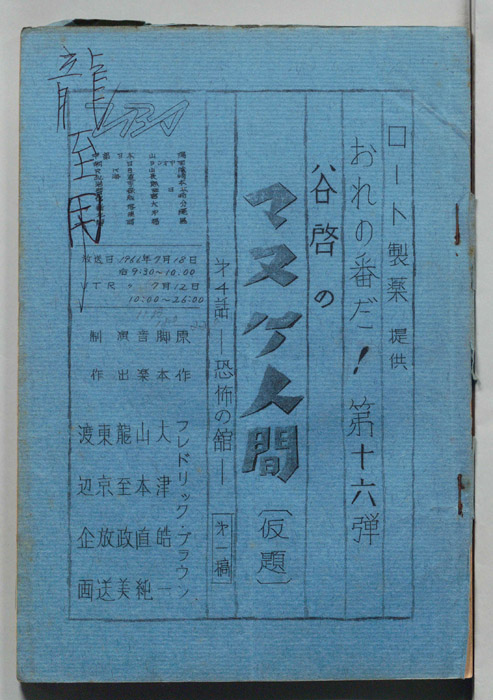 ロート製薬 提供
おれの番だ! 第十六弾
谷啓の
マヌケ人間〔仮題〕
第4話―恐怖の館―
第一稿
放送日 1966年7月18日
9:30~10:00
〃 7月12日
10:00~26:00
原作 フレドリック・ブラウン
脚本 大津皓一
音楽 山本直純
演出 龍至政美
制作 東京放送
渡辺企画
龍至用